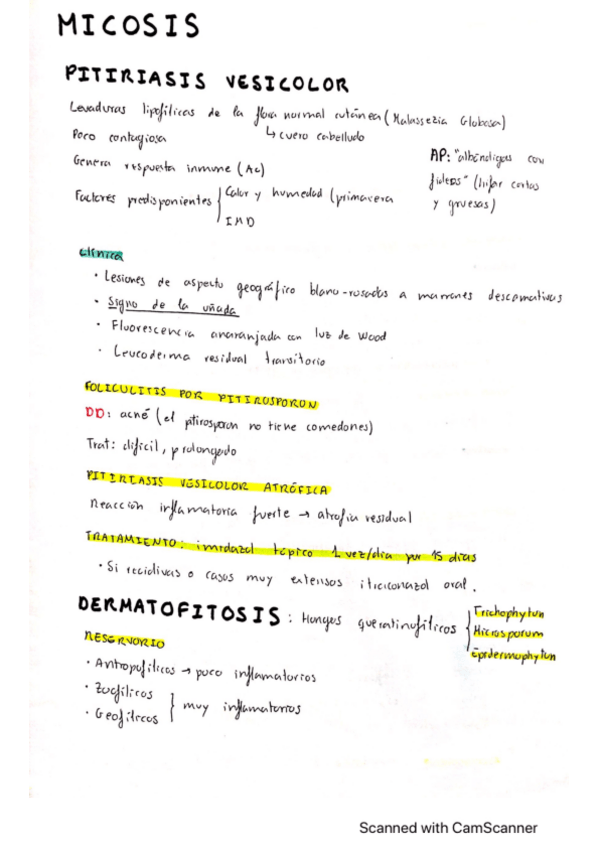 MICOSIS
PITIRIASIS VESICOLOR
Levaduras lipofílicas de la flora normal cutánea (Malassezia Globosa)
↳ cuero cabelludo
Poco contagiosa
AP: "albóndigas con
fideos" (hifas cortas
y gruesas)
Genera respuesta inmune (Ac)
Factores predisponientes { Calor y humedad (primavera
IMD
Clínica
• Lesiones de aspecto geográfico blanco-rosadas a marrones descamativas
• Signo de la uñada
• Fluorescencia anaranjada con luz de Wood
• Leucoderma residual transitorio
FOLICULITIS POR PITIROSPORON
DD: acné (el ptirosporon no tiene comedones)
Trat: difícil, prolongado
PITIRIASIS VESICOLOR ATRÓFICA
Reacción inflamatoria fuerte → atrofia residual
TRATAMIENTO: imidazol tópico 1 vez/día por 15 días
• Si recidivas o casos muy extensos itraconazol oral.
DERMATOFITOSIS: Hongos queratinofílicos { Trichophyton
Microsporum
Epidermophyton
RESERVORIO
• Antropofílicos → poco inflamatorios
• Zoofílicos } muy inflamatorios
• Geofílicos
Scanned with CamScanner